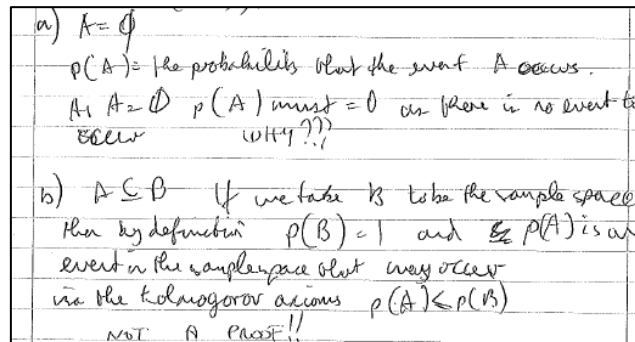 a) A = ϕ
p(A) = the probability that the event A occurs.
As A = ϕ p(A) must = 0 as there is no event to
occur WHY???
b) A ⊆ B If we take B to be the sample space
then by definition p(B) = 1 and p(A) is an
event in the sample space that may occur
via the Kolmogorov axioms p(A) ≤ p(B)
NOT A PROOF!!